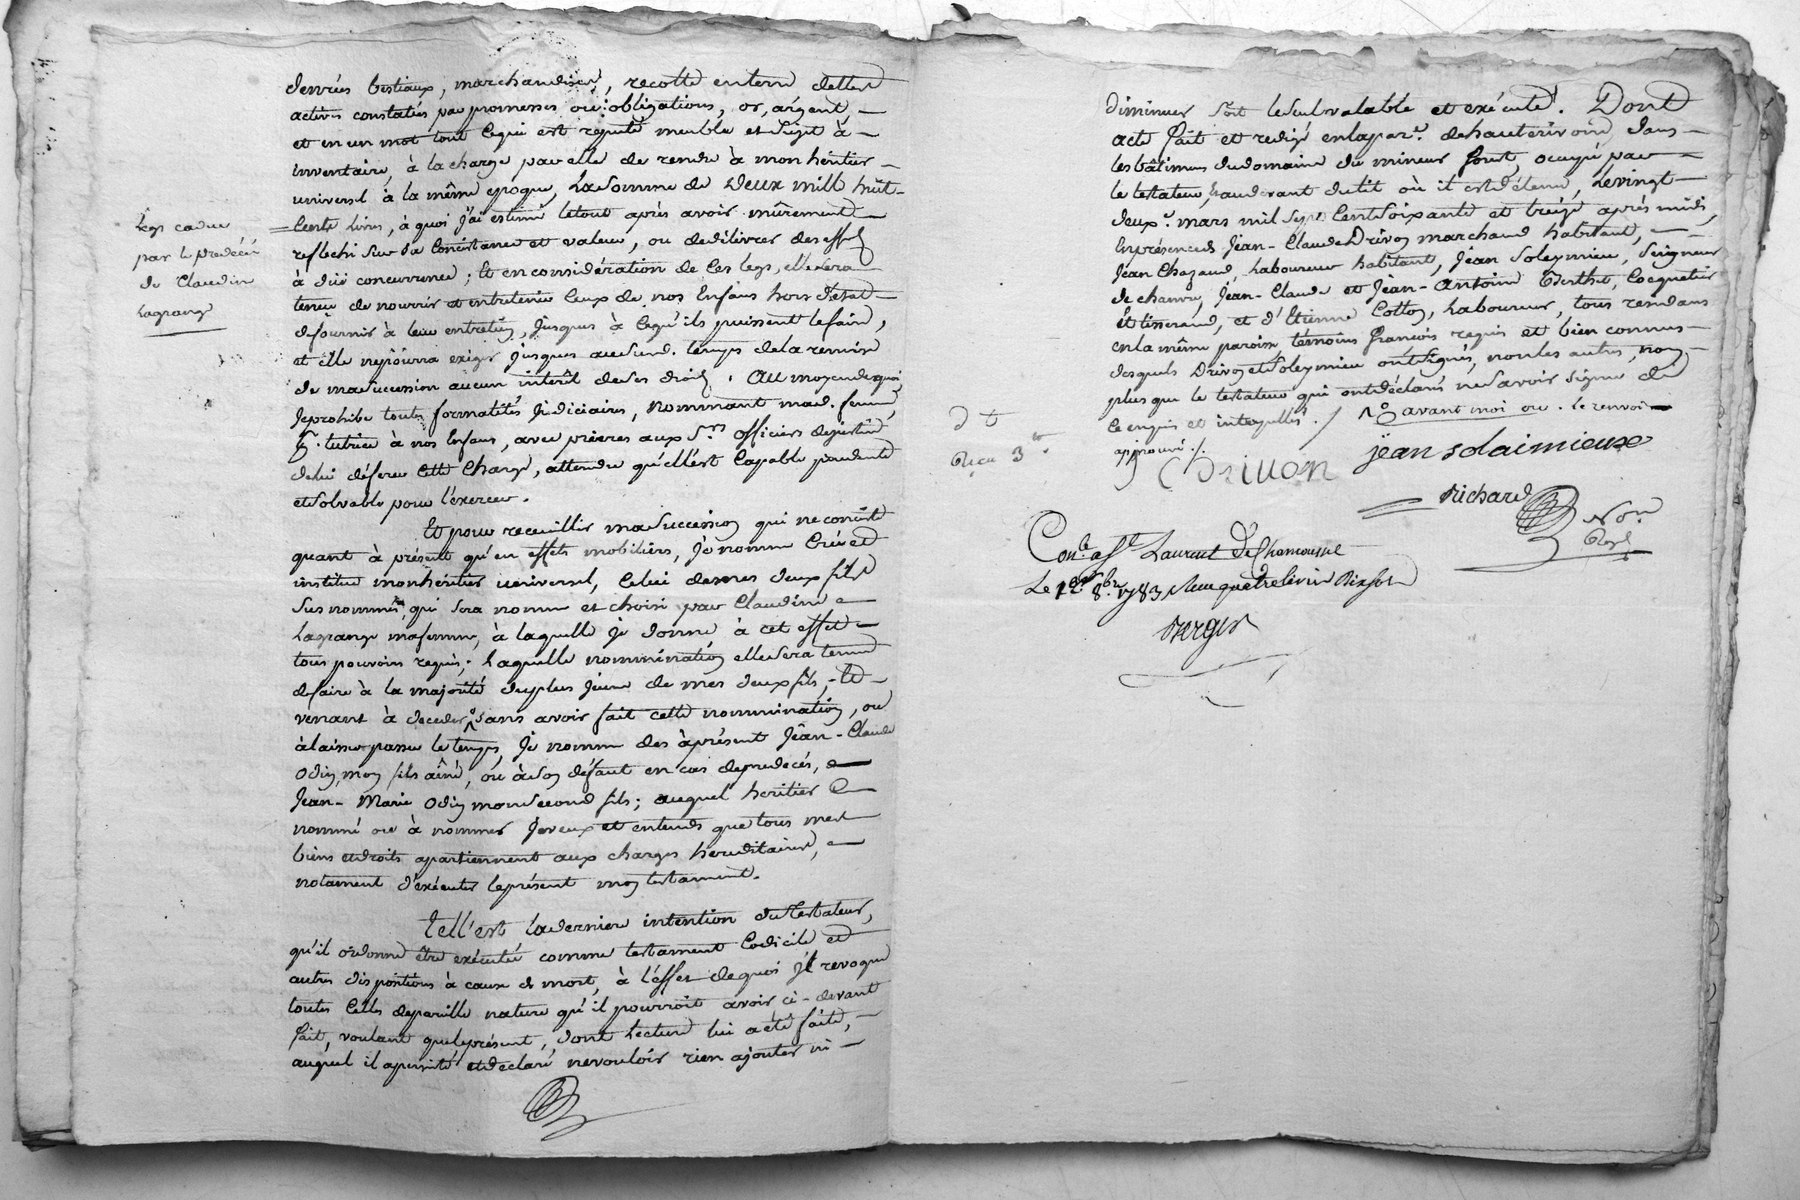 denrées bestiaux, marchandises, recolte en terre dettes
actives constatés par promesses ou obligations, or, argent,
et en un mot tout ce qui est reputé meuble et sujet à
inventaire, à la charge par elle de rendre à mon héritier
universel à la même epoque, la somme de deux mill huit
Cents Livres, à quoi j'ai estimé le tout après avoir mûrement
reflechi sur sa Consistance et valeur, ou de délivrer des effets
à düe concurrence; Et en considération de ces legs, elle sera
tenue de nourrir et entretenir ceux de nos Enfans hors d'etat
de fournir à leur entretien, jusques à ce qu'ils puissent le faire,
et elle ne pourra exiger jusques aud. temps de la remise
de ma succession aucun interêt de ses droits. Au moyen de quoi
Je prohibe toutes formalités judiciaires, Nommant mad. femme,
tutrice à nos Enfans, avec prieres aux Srs. officiers de justice
de lui déferer cette Charge, attendu qu'ell'est Capable prudente
et solvable pour l'exercer.
Legs caduc
par le predécès
de Claudine
Lagrange
Et pour receuillir ma succession qui ne consiste
quant à présent qu'en effets mobiliers, je nomme Crée et
institue mon héritier universel, Celui de mes deux fils
sus nommés qui sera nommé et choisi par Claudine
Lagrange ma femme, à laquelle je donne à cet effet
tous pouvoirs requis; laquelle nomminátion elle sera tenue
de faire à la majorité du plus jeune de mes deux fils, Et
venant à deceder sans avoir fait cette nommination, ou
à laisser passer le temps, Je nomme des àprésent Jean-Claude
Odin, mon fils aîné, ou à son défaut en cas de predecés,
Jean-Marie Odin mon second fils; auquel heritier
nommé ou à nommer je veux et entends que tous mes
biens et droits apartiennent aux charges hereditaires,
notament d'exécuter le présent mon testament.
Tell'est la derniere intention du Testateur,
qu'il ordonne être exécutée comme testament Codicile et
autres dispositions à cause de mort, à l'effet de quoi il revoque
toutes Celles de pareille nature qu'il pourroit avoir ci-devant
fait, voulant que le présent, dont lecture lui a été faite,
auquel il a persisté et declaré ne vouloir rien ajouter ni
diminuer soit le seul valable et exécuté. Dont
acte fait et redigé en la par.e de hauterivoire, dans
les bâtimens du domaine du mineur foret, occupé par
le testateur, au devant du lit où il est détenu, Le vingt
deux.e mars mil sept Cent soixante et treize après midi,
En présence de Jean-Claude Drivon marchand habitant,
Jean Chazaud, Laboureur habitant, Jean Soleymieu, Seigneur
de chanvre, Jean-Claude et Jean-Antoine Berthet, Cocquetier
et tisserand, et d'Etienne Cotton, Laboureur, tous residans
en la même paroisse témoins francois requis et bien connus
desquels Drivon et Soleymieu ont signés, non les autres, non
plus que le testateur qui ont déclarés ne savoir signer de
ce enquis et interpellés. / avant moi ou. le renvoi
approuvé./.
Drivon jean solaimieux
d t
Reçu 3
Richard
Nore
Royl
Con.lé à St Laurent De Chamousset
Le 12 8.bre 1783
verger